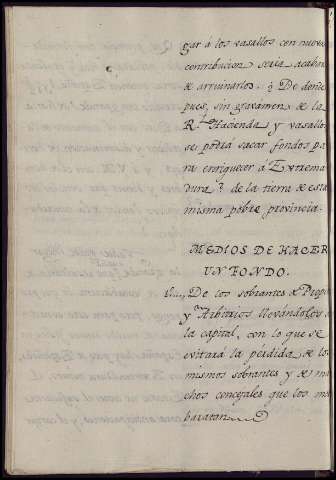 gar á los vasallos con nueva
contribucion seria acabar
de arruinarlos. ¿De donde
pues, sin gravamen de la
Rl. Hacienda y vasallos
se podrá sacar fondos pa
ra enriquecer á Extrema
dura? de la tierra de esta
misma pobre provincia.
MEDIOS DE HACER
UN FONDO.
De los sobrantes de Propios
y Arbitrios llevandolos á
la capital, con lo que se
evitará la pérdida de los
mismos sobrantes y de mu
chos concejales que los ma
baratan